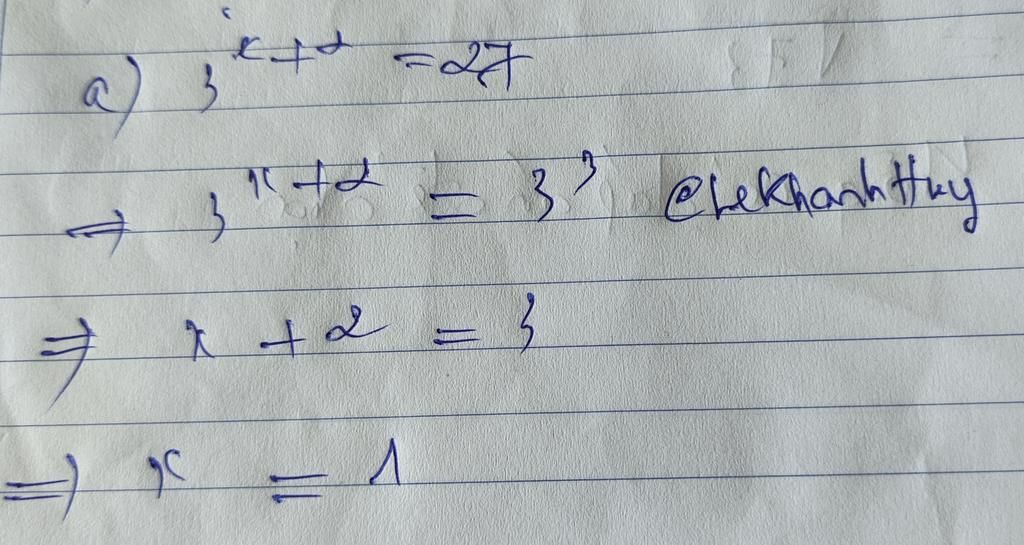 a) 3^{x+2} = 27
⇒ 3^{x+2} = 3^3 @LeKhanhHuy
⇒ x + 2 = 3
⇒ x = 1